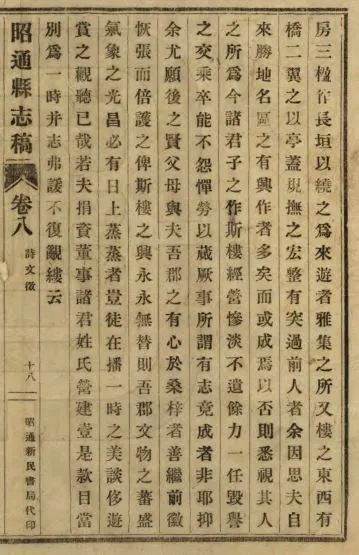 房三楹作長垣以繞之爲來遊者雅集之所又樓之東西有
橋二翼之以亭蓋規撫之宏整有突過前人者余因思夫自
來勝地名區之有興作者多矣而或成焉以否則悉視其人
之所爲今諸君子之作斯樓經營慘淡不遺餘力一任毀譽
之交乘卒能不怨憚勞以蕆厥事所謂有志竟成者非耶抑
余尤願後之賢父母與夫吾郡之有心於桑梓者善繼前徽
恢張而倍護之俾斯樓之興永永無替則吾郡文物之蕃盛
氣象之光昌必有日上蒸蒸者豈徒在播一時之美談侈遊
賞之觀聽已哉若夫捐資董事諸君姓氏營建壹是款目當
別爲一時幷志弗諼不復覼縷云
昭通縣志稿
卷八
詩文徵
十八
昭通新民書局代印